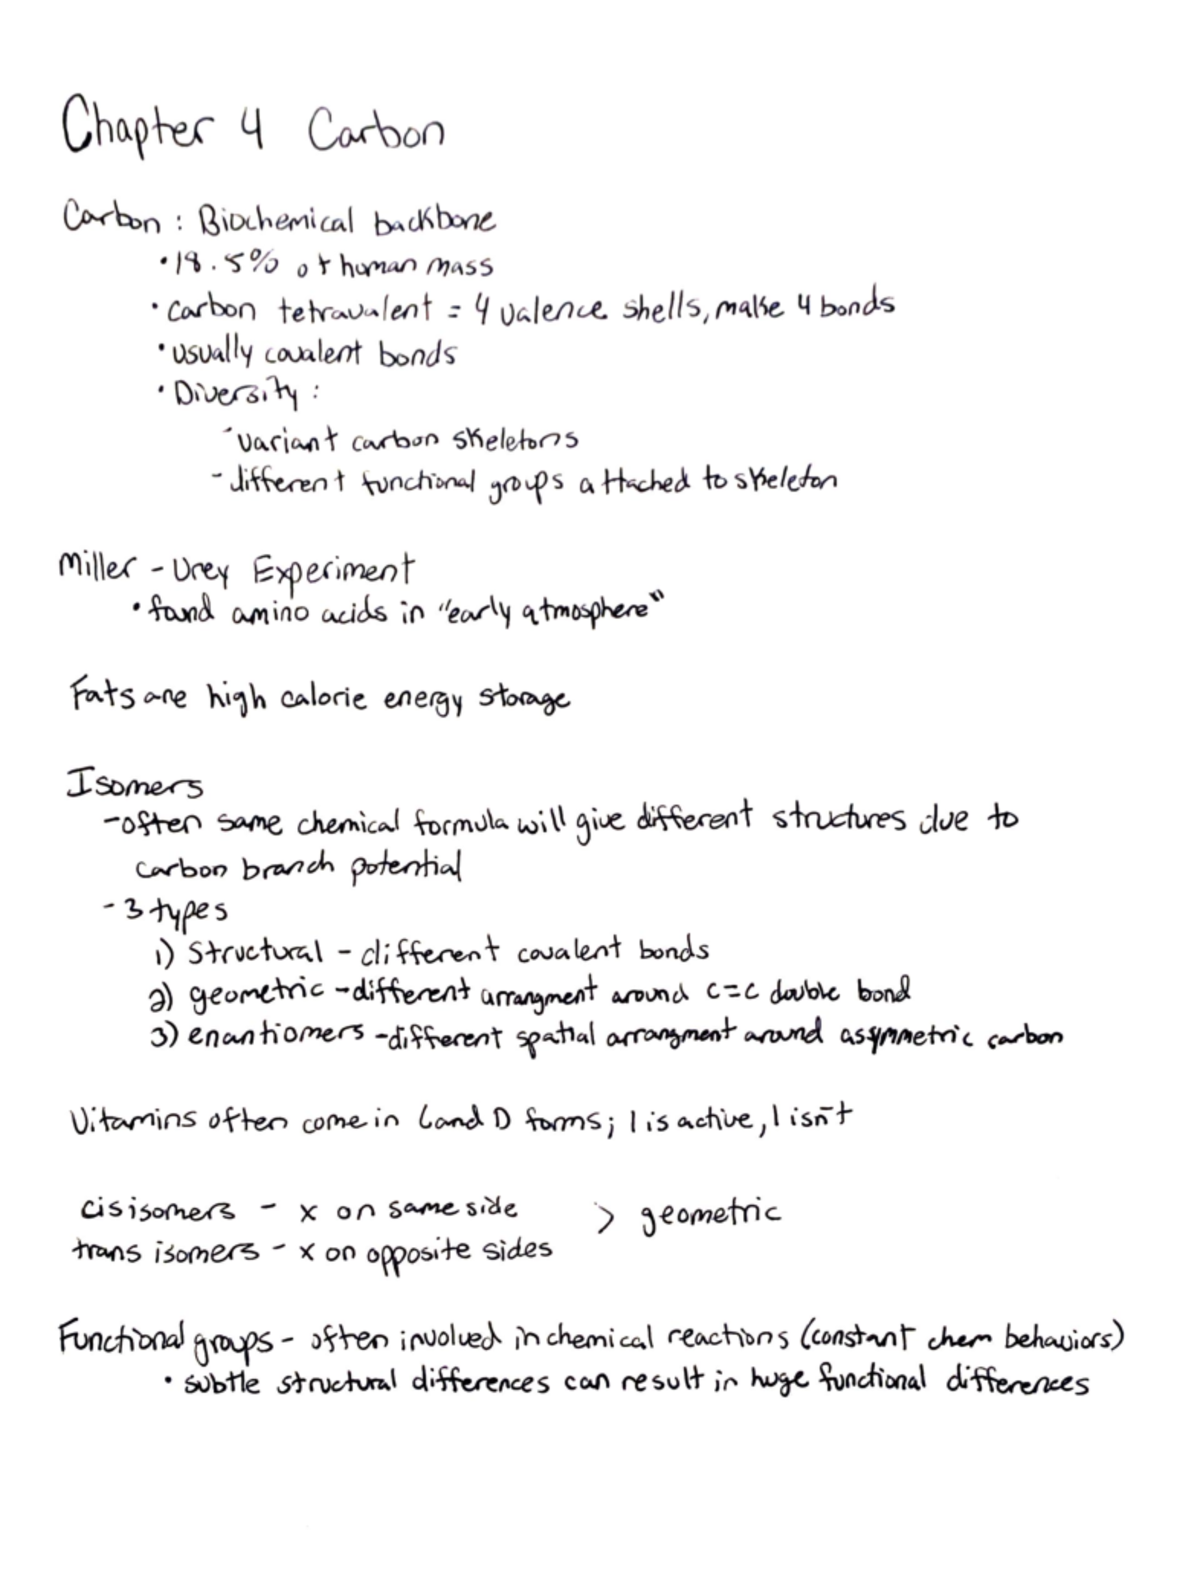 Chapter 4 Carbon
Carbon : Biochemical backbone
• 18.5% of human mass
• carbon tetravalent = 4 valence shells, make 4 bonds
• usually covalent bonds
• Diversity :
- variant carbon skeletons
- different functional groups attached to skeleton
Miller - Urey Experiment
• found amino acids in "early atmosphere"
Fats are high calorie energy storage
Isomers
- often same chemical formula will give different structures due to
carbon branch potential
- 3 types
1) Structural - different covalent bonds
2) geometric - different arrangment around c=c double bond
3) enantiomers - different spatial arrangment around assymmetric carbon
Vitamins often come in L and D forms; 1 is active, 1 isn't
cis isomers - x on same side > geometric
trans isomers - x on opposite sides
Functional groups - often involved in chemical reactions (constant chem behaviors)
• subtle structural differences can result in huge functional differences